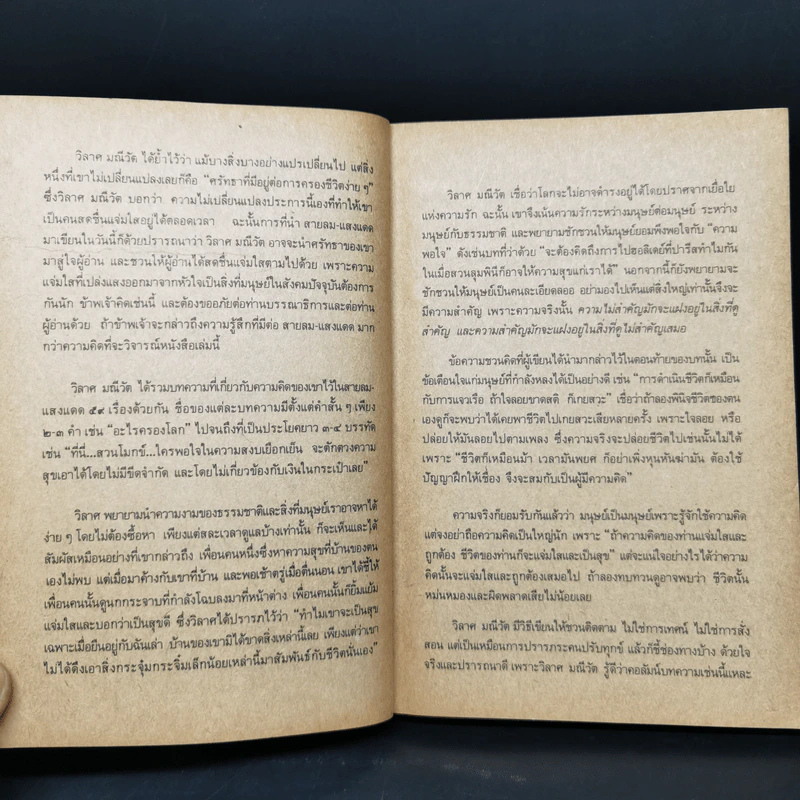 วิลาศ มณีวัต ได้ย้ำไว้ว่า แม้บางสิ่งบางอย่างแปรเปลี่ยนไป แต่สิ่ง
หนึ่งที่เขาไม่เปลี่ยนแปลงเลยก็คือ “ศรัทธาที่มีอยู่ต่อการครองชีวิตง่าย ๆ”
ซึ่งวิลาศ มณีวัต บอกว่า ความไม่เปลี่ยนแปลงประการนี้เองที่ทำให้เขา
เป็นคนสดชื่นแจ่มใสอยู่ได้ตลอดเวลา ฉะนั้นการที่นำ สายลม-แสงแดด
มาเขียนในวันนี้ก็ด้วยปรารถนาว่า วิลาศ มณีวัต อาจจะนำศรัทธาของเขา
มาสู่ใจผู้อ่าน และชวนให้ผู้อ่านได้สดชื่นแจ่มใสตามไปด้วย เพราะความ
แจ่มใสที่เปล่งแสงออกมาจากหัวใจเป็นสิ่งที่มนุษย์ในสังคมปัจจุบันต้องการ
กันนัก ข้าพเจ้าคิดเช่นนี้ และต้องขออภัยต่อท่านบรรณาธิการและต่อท่าน
ผู้อ่านด้วย ถ้าข้าพเจ้าจะกล่าวถึงความรู้สึกที่มีต่อ สายลม-แสงแดด มาก
กว่าความคิดที่จะวิจารณ์หนังสือเล่มนี้
วิลาศ มณีวัต ได้รวมบทความที่เกี่ยวกับความคิดของเขาไว้ในสายลม-
แสงแดด ๕๙ เรื่องด้วยกัน ชื่อของแต่ละบทความมีตั้งแต่คำสั้น ๆ เพียง
๒-๓ คำ เช่น “อะไรครองโลก” ไปจนถึงที่เป็นประโยคยาว ๓-๔ บรรทัด
เช่น “ที่นี่...สวนโมกข์...ใครพอใจในความสงบเยือกเย็น จะตักตวงความ
สุขเอาได้โดยไม่มีขีดจำกัด และโดยไม่เกี่ยวข้องกับเงินในกระเป๋าเลย”
วิลาศ พยายามนำความงามของธรรมชาติและสิ่งที่มนุษย์เราอาจหาได้
ง่าย ๆ โดยไม่ต้องซื้อหา เพียงแต่สละเวลาดูแลบ้างเท่านั้น ก็จะเห็นและได้
สัมผัสเหมือนอย่างที่เขากล่าวถึง เพื่อนคนหนึ่งซึ่งหาความสุขที่บ้านของตน
เองไม่พบ แต่เมื่อมาค้างกับเขาที่บ้าน และพอเช้าตรู่เมื่อตื่นนอน เขาได้ชี้ให้
เพื่อนคนนั้นดูนกกระจาบที่กำลังโฉบลงมาที่หน้าต่าง เพื่อนคนนั้นก็ยิ้มแย้ม
แจ่มใสและบอกว่าเป็นสุขดี ซึ่งวิลาศได้ปรารภไว้ว่า “ทำไมเขาจะเป็นสุข
เฉพาะเมื่อยืนอยู่กับฉันเล่า บ้านของเขามิได้ขาดสิ่งเหล่านี้เลย เพียงแต่ว่าเขา
ไม่ได้ดึงเอาสิ่งกระจุ๋มกระจิ๋มเล็กน้อยเหล่านี้มาสัมพันธ์กับชีวิตนั่นเอง”
วิลาศ มณีวัต เชื่อว่าโลกจะไม่อาจดำรงอยู่ได้โดยปราศจากเยื่อใย
แห่งความรัก ฉะนั้น เขาจึงเน้นความรักระหว่างมนุษย์ต่อมนุษย์ ระหว่าง
มนุษย์กับธรรมชาติ และพยายามชักชวนให้มนุษย์ยอมพึงพอใจกับ “ความ
พอใจ” ดังเช่นบทที่ว่าด้วย “จะต้องคิดถึงการไปฮอลิเดย์ที่ปารีสทำไมกัน
ในเมื่อสวนลุมพินีก็อาจให้ความสุขแก่เราได้” นอกจากนี้ก็ยังพยายามจะ
ชักชวนให้มนุษย์เป็นคนละเอียดลออ อย่ามองไปเห็นแต่สิ่งใหญ่เท่านั้นจึงจะ
มีความสำคัญ เพราะความจริงนั้น ความไม่สำคัญมักจะแฝงอยู่ในสิ่งที่ดู
สำคัญ และความสำคัญมักจะแฝงอยู่ในสิ่งที่ดูไม่สำคัญเสมอ
ข้อความชวนคิดที่ผู้เขียนได้นำมากล่าวไว้ในตอนท้ายของบทนั้น เป็น
ข้อเตือนใจแก่มนุษย์ที่กำลังหลงได้เป็นอย่างดี เช่น “การดำเนินชีวิตก็เหมือน
กับการแจวเรือ ถ้าใจลอยขาดสติ ก็เกยสวะ” ซึ่งถ้าได้ลองพินิจชีวิตของตน
เองดูก็จะพบว่าได้เคยพาชีวิตไปเกยสวะเสียหลายครั้ง เพราะใจลอย หรือ
ปล่อยให้มันลอยไปตามเพลง ซึ่งความจริงจะปล่อยชีวิตไปเช่นนั้นไม่ได้
เพราะ “ชีวิตก็เหมือนม้า เวลามันพยศ ก็อย่าเพิ่งหุนหันฆ่ามัน ต้องใช้
ปัญญาฝึกให้เชื่อง จึงจะสมกับเป็นผู้มีความคิด”
ความจริงก็ยอมรับกันแล้วว่า มนุษย์เป็นมนุษย์เพราะรู้จักใช้ความคิด
แต่จงอย่าถือความคิดเป็นใหญ่นัก เพราะ “ถ้าความคิดของท่านแจ่มใสและ
ถูกต้อง ชีวิตของท่านก็จะแจ่มใสและเป็นสุข” แต่จะแน่ใจอย่างไรได้ว่าความ
คิดนั้นจะแจ่มใสและถูกต้องเสมอไป ถ้าลองทบทวนดูอาจพบว่า ชีวิตนั้น
หม่นหมองและผิดพลาดเสียไม่น้อยเลย
วิลาศ มณีวัต มีวิธีเขียนให้ชวนติดตาม ไม่ใช่การเทศน์ ไม่ใช่การสั่ง
สอน แต่เป็นเหมือนการปรารภระคนปรับทุกข์ แล้วก็ชี้ช่องทางบ้าง ด้วยใจ
จริงและปรารถนาดี เพราะวิลาศ มณีวัต รู้ดีว่าคอลัมน์บทความเช่นนี้แหละ